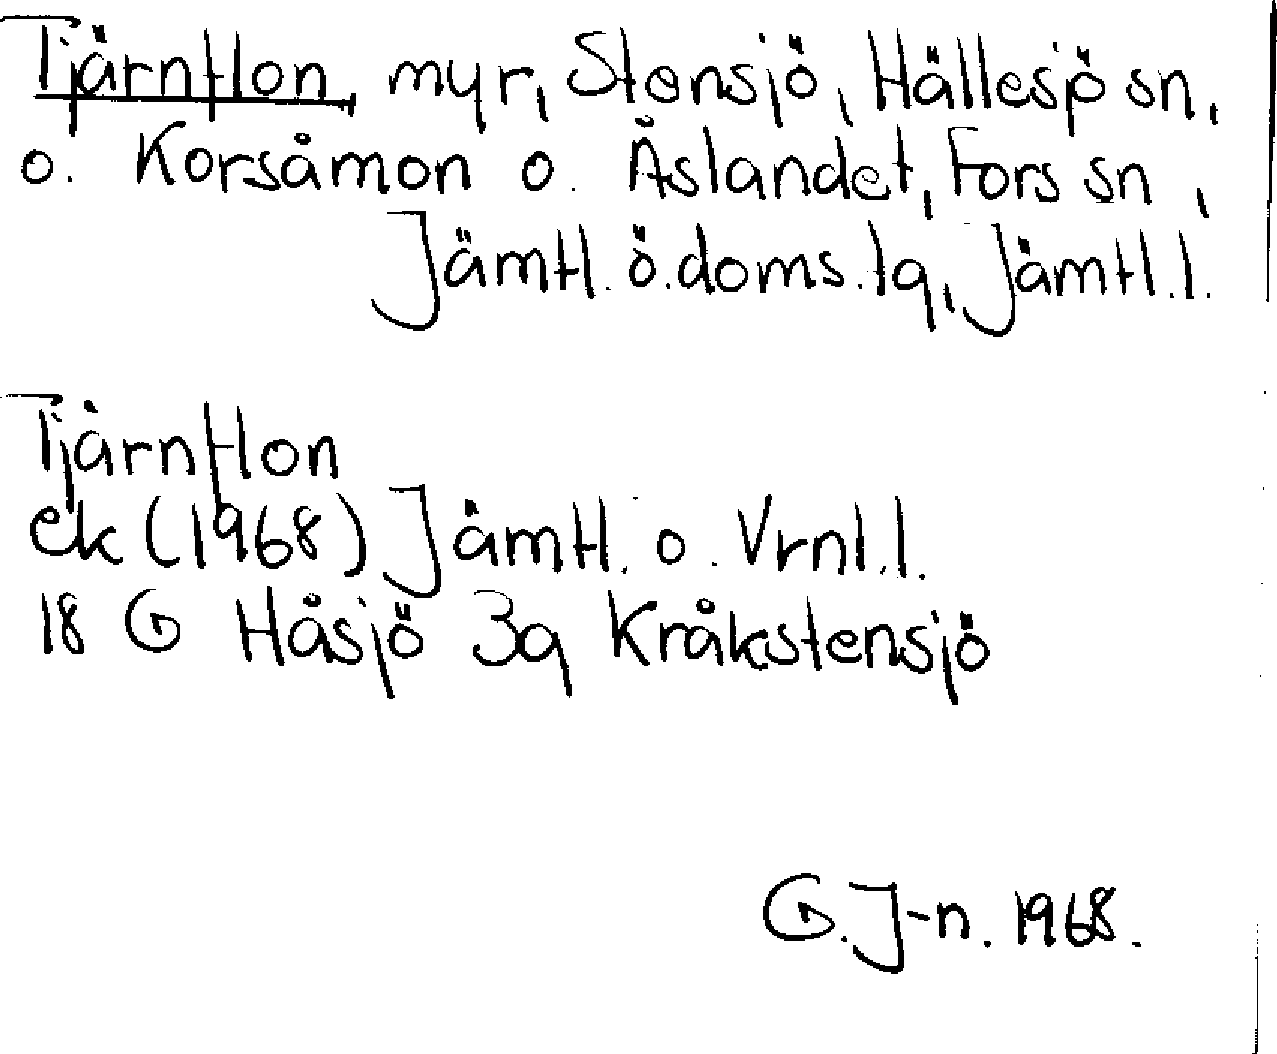 Tjärnflon, myr, Stensjö, Hällesjö sn,
o. Korsåmon o. Åslandet, Fors sn,
Jämtl. ö. doms. lq, Jämtl. l.
Tjärnflon
ek (1968) Jämtl. o. Vrnl. l.
18 G Håsjö 3q Kråkstensjö
G. J-n. 1968.